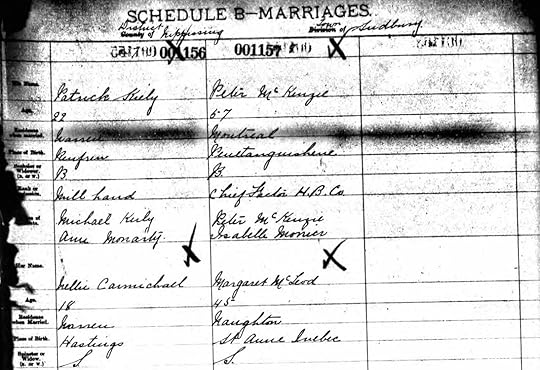 SCHEDULE B—MARRIAGES.
District County of Nipissing Town Division of Sudbury
001156 001157
His Name. Patrick Kiely Peter McKenzie
Age. 22 57
Residence when married. Warren Montreal
Place of Birth. Renfrew Penetanguishene
Bachelor or Widower. (B. or W.) B B
Rank or Mill hand Chief Factor H.B.Co.
Michael Kiely Peter McKenzie
Ann Moriarty Isabella
Her Name. Nellie Carmichael Margaret McLeod
Age. 18 45
Residence when Married. Warren Naughton
Place of Birth. Hastings St Anne Quebec
Spinster or Widow. (S. or W.) S. S.